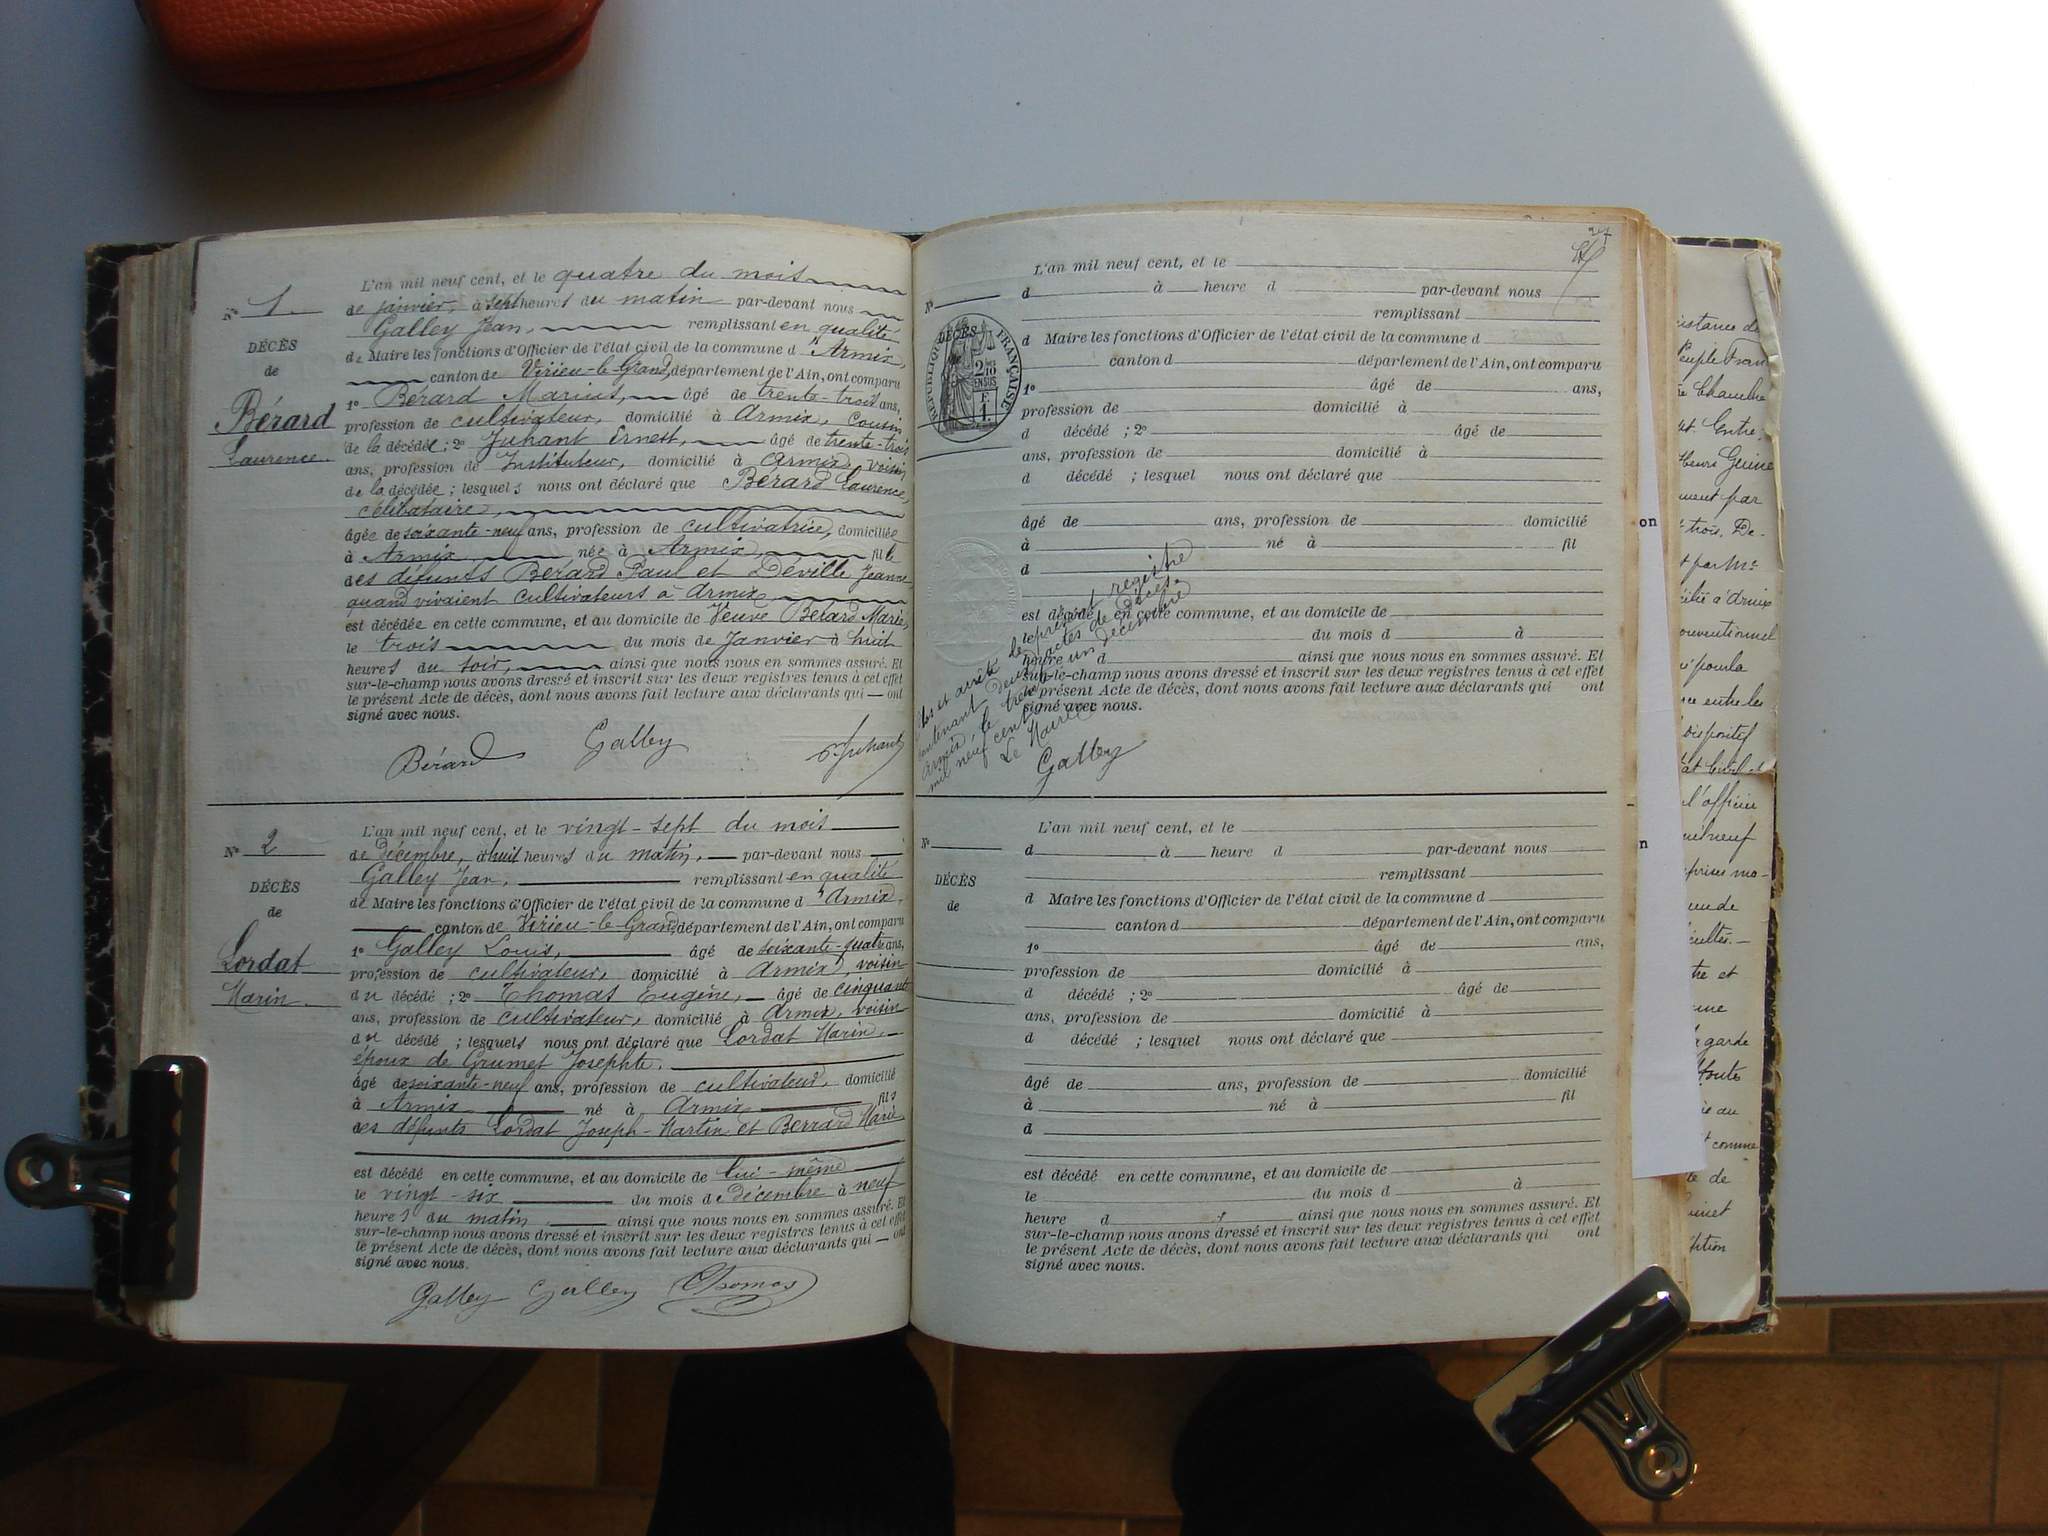 L'an mil neuf cent, et le quatre du mois
N° 1.
de janvier, à sept heures du matin par-devant nous
Galley Jean, remplissant en qualité
DÉCÈS
de Maire les fonctions d'Officier de l'état civil de la commune d'Armix,
de
canton de Virieu-le-Grand, département de l'Ain, ont comparu
1° Bérard Marius, âgé de trente-trois ans,
Bérard
profession de cultivateur, domicilié à Armix, cousin
Laurence.
de la décédée ; 2° Juhant Ernest, âgé de trente-trois
ans, profession de Instituteur, domicilié à Armix, voisin
de la décédée ; lesquels nous ont déclaré que Bérard Laurence,
célibataire,
âgée de soixante-neuf ans, profession de cultivatrice, domiciliée
à Armix, née à Armix, fille
des défunts Bérard Paul et Déville Jeanne
quand vivaient cultivateurs à Armix,
est décédée en cette commune, et au domicile de Veuve Bérard Marie,
le trois du mois de Janvier à huit
heures du soir, ainsi que nous nous en sommes assuré. Et
sur-le-champ nous avons dressé et inscrit sur les deux registres tenus à cet effet
le présent Acte de décès, dont nous avons fait lecture aux déclarants qui ont
signé avec nous.
Bérard Galley E. Juhant
L'an mil neuf cent, et le vingt-sept du mois
N° 2
de décembre, à huit heures du matin, par-devant nous
Galley Jean, remplissant en qualité
DÉCÈS
de Maire les fonctions d'Officier de l'état civil de la commune d'Armix,
de
canton de Virieu-le-Grand, département de l'Ain, ont comparu
1° Galley Louis, âgé de soixante-quatre ans,
Lordat
profession de cultivateur, domicilié à Armix, voisin
Marin.
du décédé ; 2° Thomas Eugène, âgé de cinquante
ans, profession de cultivateur, domicilié à Armix, voisin
du décédé ; lesquels nous ont déclaré que Lordat Marin,
époux de Grumet Josephte.
âgé de soixante-neuf ans, profession de cultivateur, domicilié
à Armix né à Armix fils
des défunts Lordat Joseph-Martin et Berrard Marie
est décédé en cette commune, et au domicile de lui-même
le vingt-six du mois de décembre à neuf
heures du matin, ainsi que nous nous en sommes assuré. Et
sur-le-champ nous avons dressé et inscrit sur les deux registres tenus à cet effet
le présent Acte de décès, dont nous avons fait lecture aux déclarants qui ont
signé avec nous.
Galley Galley Thomas
27
L'an mil neuf cent, et le
N°
d à heure d par-devant nous
remplissant
DÉCÈS
RÉPUBLIQUE FRANÇAISE
2/10 EN SUS
F. 1.
d Maire les fonctions d'Officier de l'état civil de la commune d
canton d département de l'Ain, ont comparu
1° âgé de ans,
profession de domicilié à
d décédé ; 2° âgé de
ans, profession de domicilié à
d décédé ; lesquel nous ont déclaré que
âgé de ans, profession de domicilié
à né à fil
d
est décédé en cette commune, et au domicile de
le du mois d à
heure d ainsi que nous nous en sommes assuré. Et
sur-le-champ nous avons dressé et inscrit sur les deux registres tenus à cet effet
le présent Acte de décès, dont nous avons fait lecture aux déclarants qui ont
signé avec nous.
Clos et arrêté le présent registre
contenant deux actes de décès.
Armix, le trente un décembre
mil neuf cent
Le Maire
Galley
L'an mil neuf cent, et le
N°
d à heure d par-devant nous
remplissant
DÉCÈS
d Maire les fonctions d'Officier de l'état civil de la commune d
de
canton d département de l'Ain, ont comparu
1° âgé de ans,
profession de domicilié à
d décédé ; 2° âgé de
ans, profession de domicilié à
d décédé ; lesquel nous ont déclaré que
âgé de ans, profession de domicilié
à né à fil
d
est décédé en cette commune, et au domicile de
le du mois d à
heure d ainsi que nous nous en sommes assuré. Et
sur-le-champ nous avons dressé et inscrit sur les deux registres tenus à cet effet
le présent Acte de décès, dont nous avons fait lecture aux déclarants qui ont
signé avec nous.
on
n
Chambre
Entre
par
trois. De
par Me
à Armix
pour la
entre les
dispositif
l'officier
neuf
et
garde
toutes
au
comme
de